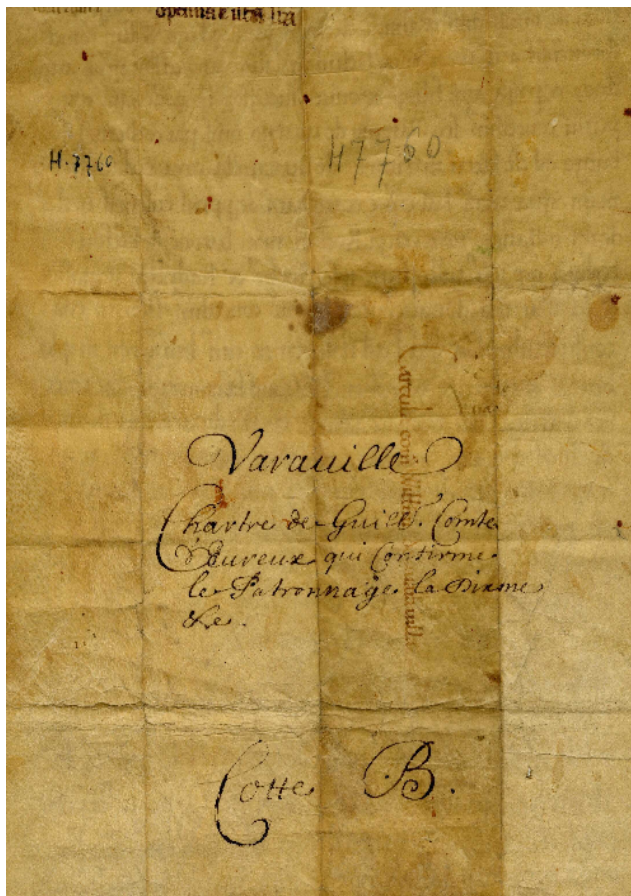 H. 7760
H 7760
Varauille
Chartre de Guill. Comte
d'Eureux qui Confirme
le Patronnage. la Dixme
&c.
Cotte B.